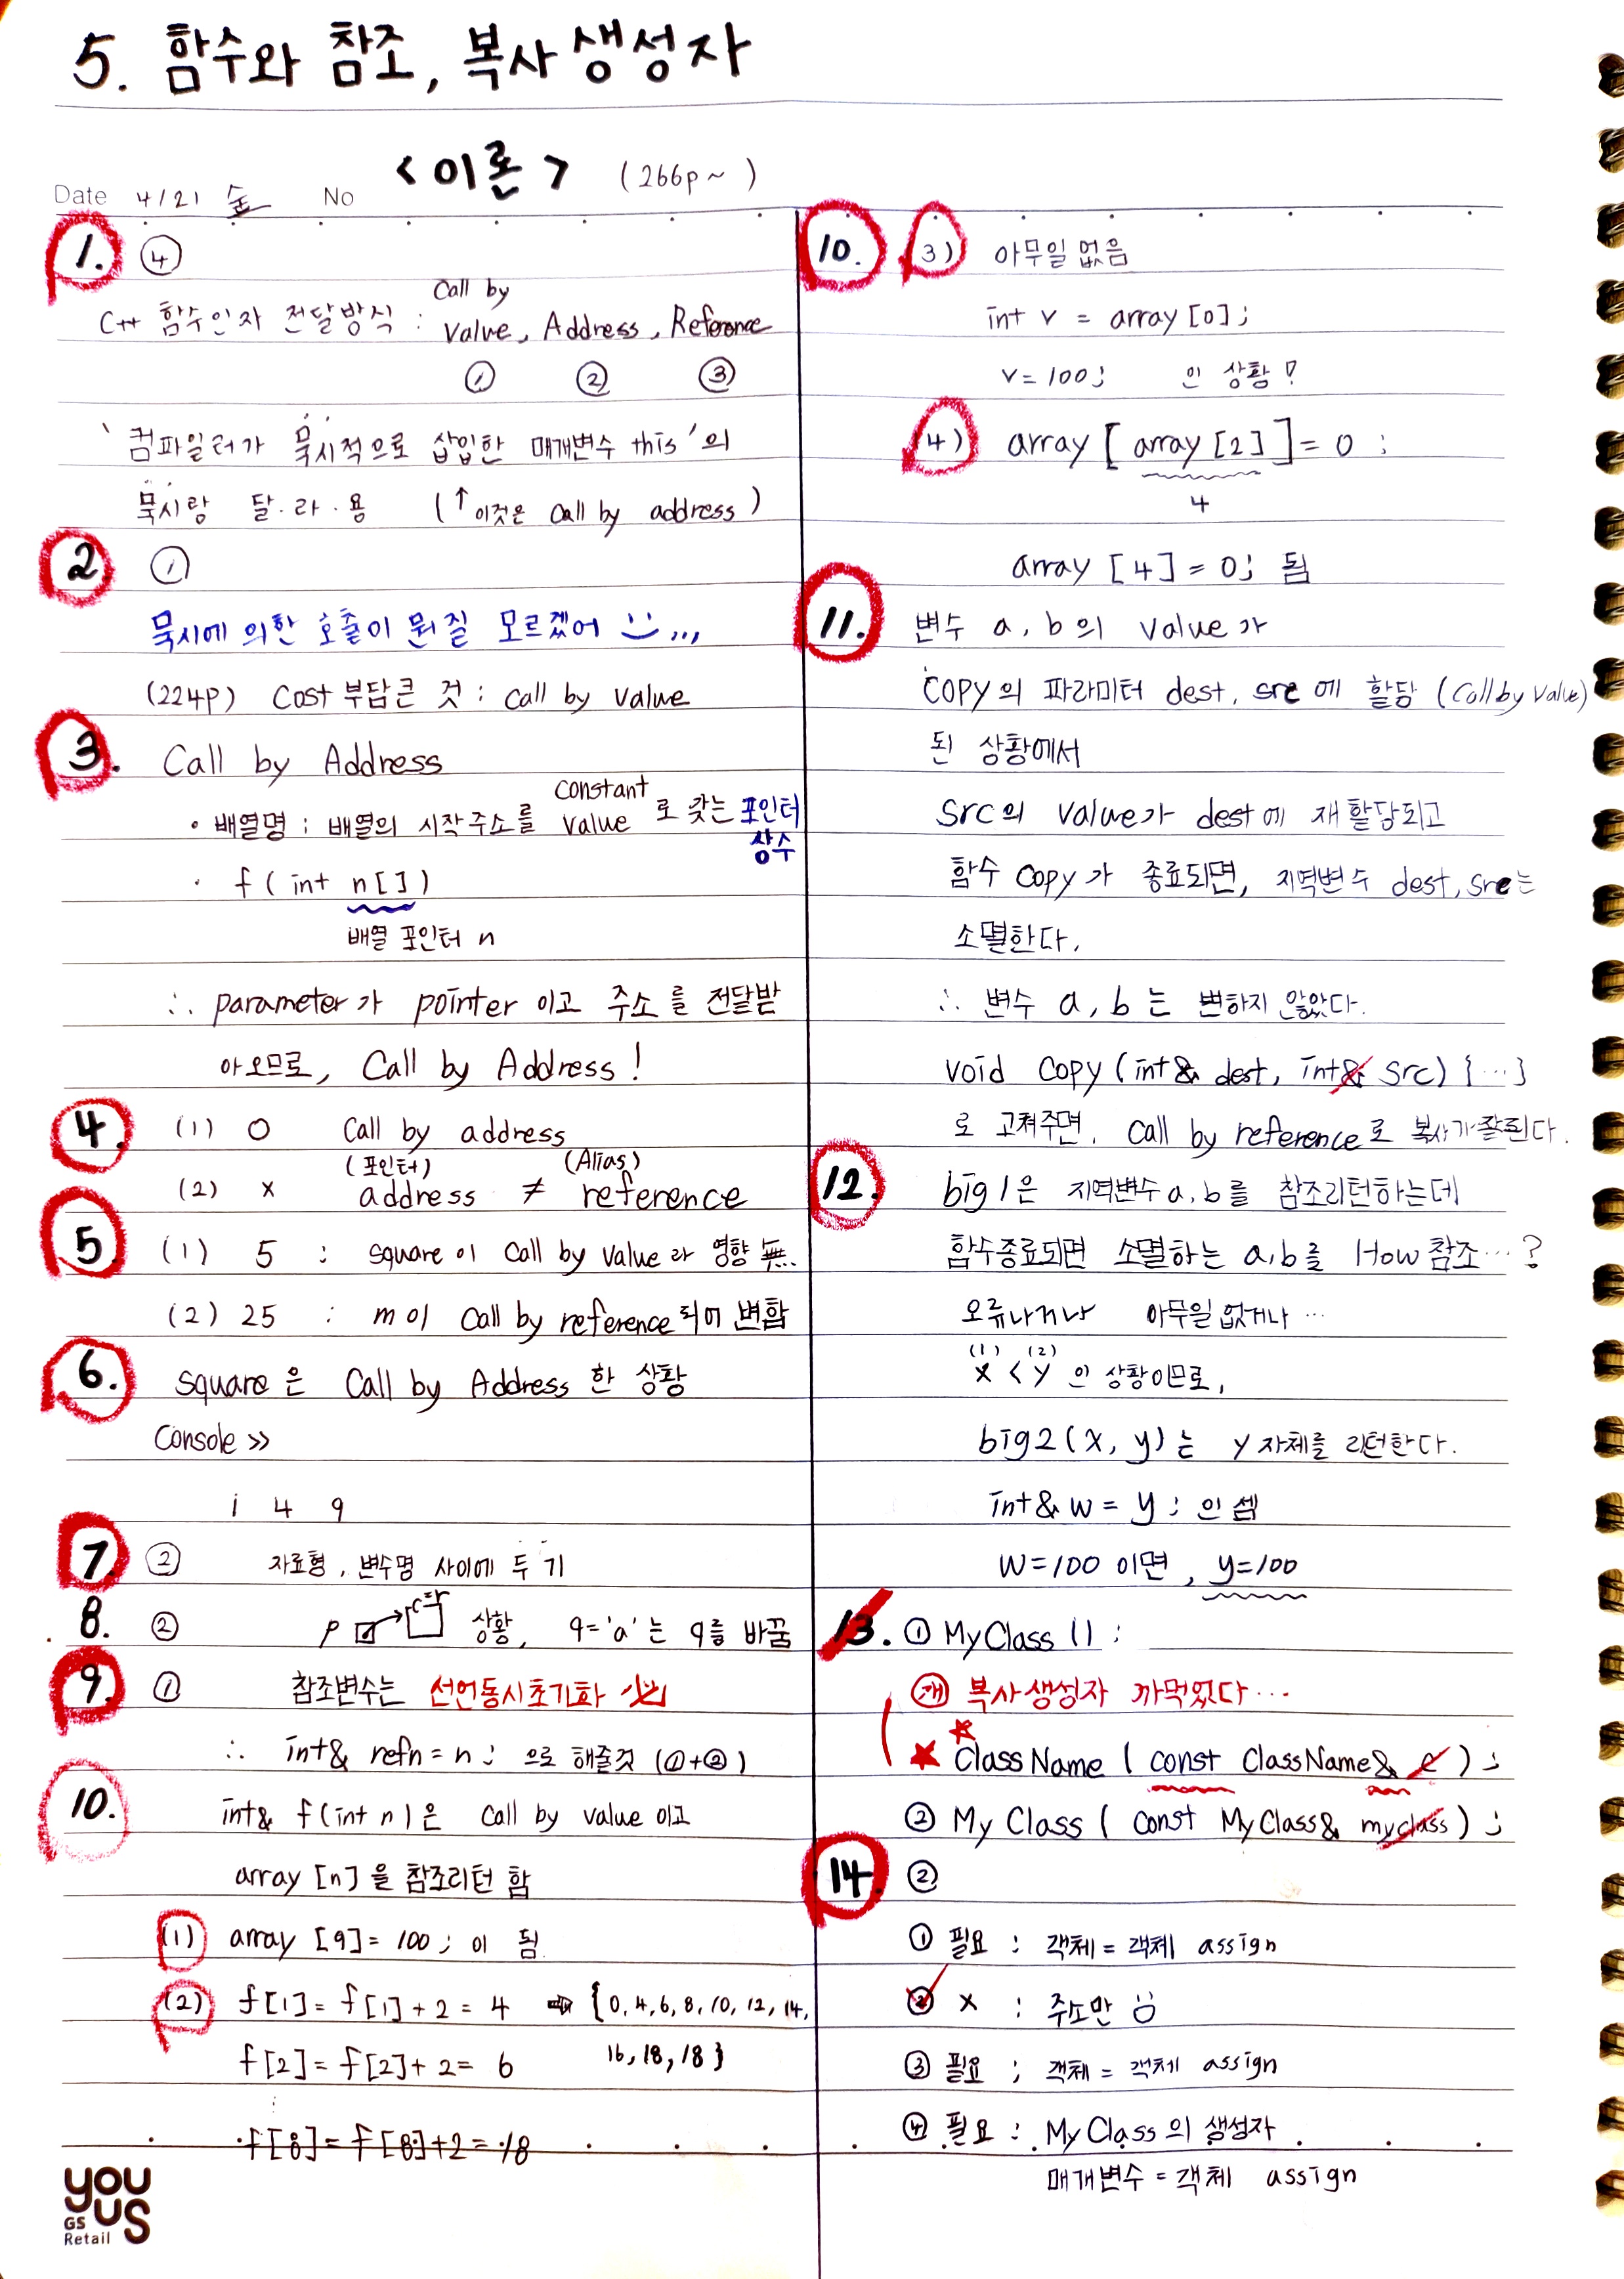 5. 함수와 참조, 복사 생성자
<이론> (266p~ )
Date 4/21 金 No
1. ④
Call by
C++ 함수인자 전달방식 : Value, Address, Reference
① ② ③
'컴파일러가 묵시적으로 삽입한 매개변수 this'의
묵시랑 달·라·용 (↑이것은 Call by address)
2 ①
묵시에 의한 호출이 뭔질 모르겠어
(224p) Cost 부담큰 것 : call by value
3. Call by Address
• 배열명 : 배열의 시작주소를 constant value로 갖는 포인터
상수
· f (int n[])
배열 포인터 n
∴ parameter가 pointer 이고 주소를 전달받
아오므로, Call by Address!
4. (1) O Call by address
(포인터) (Alias)
(2) x address ≠ reference
5 (1) 5 : square이 call by value라 영향 無.
(2) 25 : m이 call by reference되어 변함
6. square은 Call by Address 한 상황
Console >>
1 4 9
7. ② 자료형, 변수명 사이에 두기
8. ② p 상황, q='a'는 q를 바꿈
9. ① 참조변수는 선언동시초기화
∴ int& refn = n; 으로 해줄것 (①+②)
10. int& f(int n)은 call by value 이고
array [n]을 참조리턴 함
(1) array [9] = 100; 이 됨.
(2) f[1] = f[1] + 2 = 4 ⇒ {0, 4, 6, 8, 10, 12, 14,
f[2] = f[2] + 2 = 6 16, 18, 18}
⋮
f[8] = f[8]+2 = 18
you
us
GS
Retail
10. 3) 아무일 없음
int v = array [0];
v = 100; 인 상황?
(4) array [array [2]] = 0 ;
4
array [4] = 0; 됨
11. 변수 a, b의 value가
COPY의 파라미터 dest, src에 할당 (Call by Value)
된 상황에서
src의 value가 dest에 재할당되고
함수 copy가 종료되면, 지역변수 dest, src는
소멸한다.
∴ 변수 a, b는 변하지 않았다.
void copy (int& dest, int& src) {…}
로 고쳐주면, call by reference로 복사가 잘된다.
12. big1은 지역변수 a, b를 참조리턴하는데
함수종료되면 소멸하는 a, b를 How 참조…?
오류나거나 아무일 없거나…
(1) (2)
x < y 인 상황이므로,
big2(x, y)는 y 자체를 리턴한다.
int& w = y; 인 셈
w=100 이면, y=100
13. ① MyClass ();
복사생성자 까먹었다…
★ ★ ClassName (const ClassName& c);
② My Class (const MyClass& myclass);
14. ②
① 필요 : 객체 = 객체 assign
② x : 주소만
③ 필요 ; 객체 = 객체 assign
④ 필요 : MyClass의 생성자
매개변수 = 객체 assign